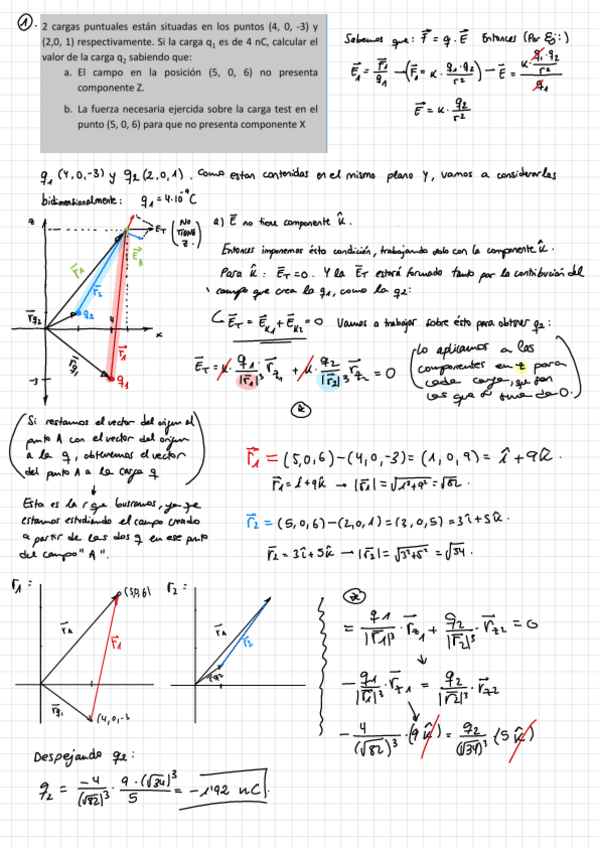 1. 2 cargas puntuales están situadas en los puntos (4, 0, -3) y
(2,0, 1) respectivamente. Si la carga q₁ es de 4 nC, calcular el
valor de la carga q₂ sabiendo que:
a. El campo en la posición (5, 0, 6) no presenta
componente Z.
b. La fuerza necesaria ejercida sobre la carga test en el
punto (5, 0, 6) para que no presenta componente X
Sabemos que: F = q · E Entonces (Por Ej:)
E₁ = F₁/q₁ → (F₁ = K · q₁·q₂/r²) → E = K · q₁·q₂/r² / q₁
E = K · q₂/r²
q₁ (4,0,-3) y q₂ (2,0,1). Como estan contenidas en el mismo plano Y, vamos a considerarlas
bidimensionalmente: q₁ = 4·10⁻⁹ C
z
x
-3
4
r₁
r₂
q₂
q₁
r₁
r_q₂
r_q₁
E_T (NO TIENE Z.)
E_A
a) E no tiene componente k.
Entonces imponemos ésta condición, trabajando solo con la componente k.
Para k: E_T = 0. Y la E_T estará formado tanto por la contribución del
campo que crea la q₁, como la q₂:
E_T = E_K1 + E_K2 = 0 Vamos a trabajar sobre ésto para obtener q₂:
E_T = K · q₁/|r₁|³ · r_z1 + K · q₂/|r₂|³ · r_z2 = 0
(Lo aplicamos a las
componentes en z para
cada carga, que son
las que 0.)
(Si restamos el vector del origen al
punto A con el vector del origen
a la q, obtenemos el vector
del punto A a la carga q)
Esta es la r que buscamos, ya que
estamos estudiando el campo creado
a partir de las dos q en ese punto
del campo "A".
r₁ = (5,0,6) - (4,0,-3) = (1,0,9) = i + 9k.
r₁ = i + 9k → |r₁| = √1²+9² = √82.
r₂ = (5,0,6) - (2,0,1) = (3,0,5) = 3i + 5k.
r₂ = 3i + 5k → |r₂| = √3²+5² = √34.
r₁ =
(5,0,6)
r_A
r₁
r_q₁
(4,0,-3
r₂ =
r_A
r₂
r_q₂
= q₁/|r₁|³ · r_z1 + q₂/|r₂|³ · r_z2 = 0
- q₁/|r₁|³ · r_z1 = q₂/|r₂|³ · r_z2
- 4/(√82)³ · (9k) = q₂/(√34)³ (5k)
Despejando q₂:
q₂ = -4/(√82)³ · 9·(√34)³/5 = -1'92 nC.